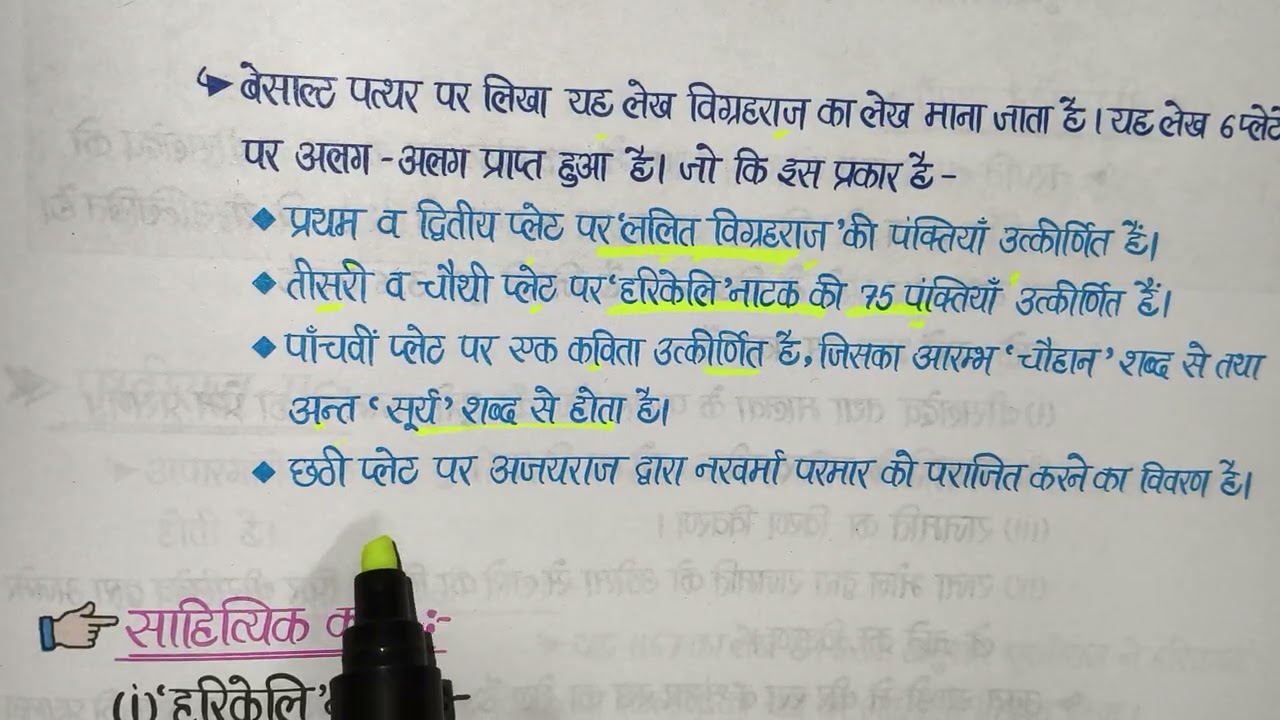 बेसाल्ट पत्थर पर लिखा यह लेख विग्रहराज का लेख माना जाता है। यह लेख 6 प्लेटों
पर अलग-अलग प्राप्त हुआ है। जो कि इस प्रकार है-
प्रथम व द्वितीय प्लेट पर 'ललित विग्रहराज' की पंक्तियाँ उत्कीर्णित हैं।
तीसरी व चौथी प्लेट पर 'हरिकेलि' नाटक की 75 पंक्तियाँ उत्कीर्णित हैं।
पाँचवीं प्लेट पर एक कविता उत्कीर्णित है, जिसका आरम्भ 'चौहान' शब्द से तथा
अन्त 'सूर्य' शब्द से होता है।
छठी प्लेट पर अजयराज द्वारा नरवर्मा परमार को पराजित करने का विवरण है।
साहित्यिक :-
(i) 'हरिकेलि'